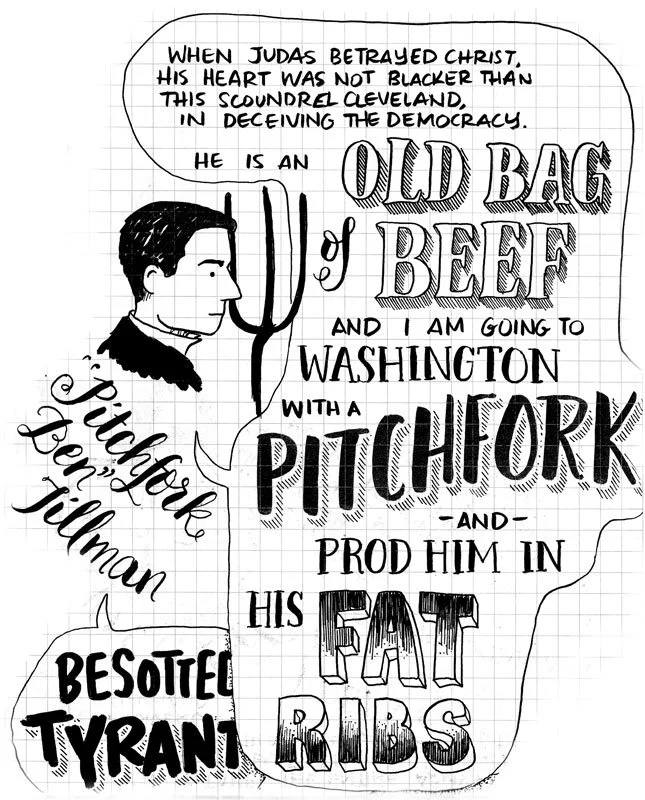 WHEN JUDAS BETRAYED CHRIST,
HIS HEART WAS NOT BLACKER THAN
THIS SCOUNDREL CLEVELAND,
IN DECEIVING THE DEMOCRACY.
HE IS AN OLD BAG
of BEEF
AND I AM GOING TO
WASHINGTON
WITH A
PITCHFORK
-AND-
PROD HIM IN
HIS FAT
RIBS
"Pitchfork
Ben"
Tillman
BESOTTED
TYRANT